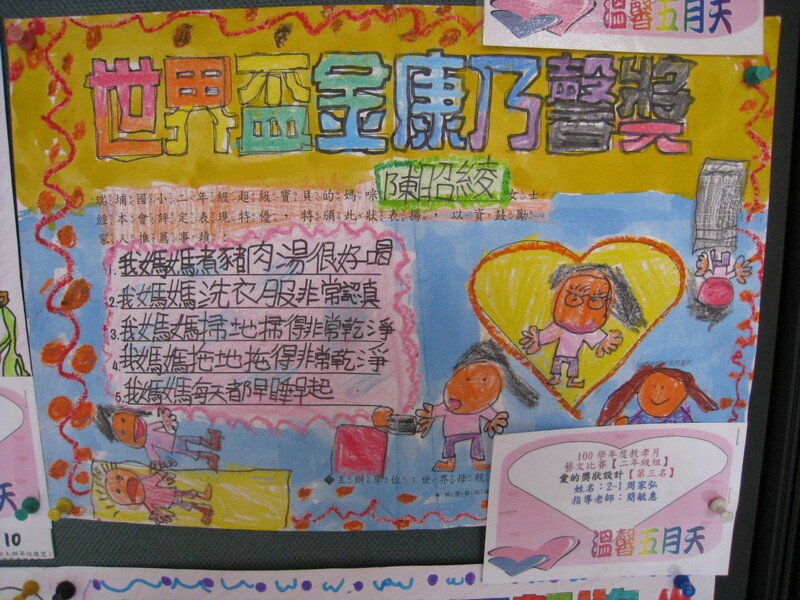 溫馨五月天
世界盃金康乃馨獎
陳昭綾
瑞埔國小二年級超級寶貝的媽咪 女士
經本會評定表現特優,特頒此狀表揚,以資鼓勵。
家人推薦事蹟:
1.我媽媽煮豬肉湯很好喝
2.我媽媽洗衣服非常認真
3.我媽媽掃地掃得非常乾淨
4.我媽媽拖地拖得非常乾淨
5.我媽媽每天都早睡早起
◆主辦單位:世界母親
100學年度教孝月
藝文比賽【二年級組】
愛的獎狀設計【第三名】
姓名:2-1周家弘
指導老師:簡敏惠
溫馨五月天
天
10